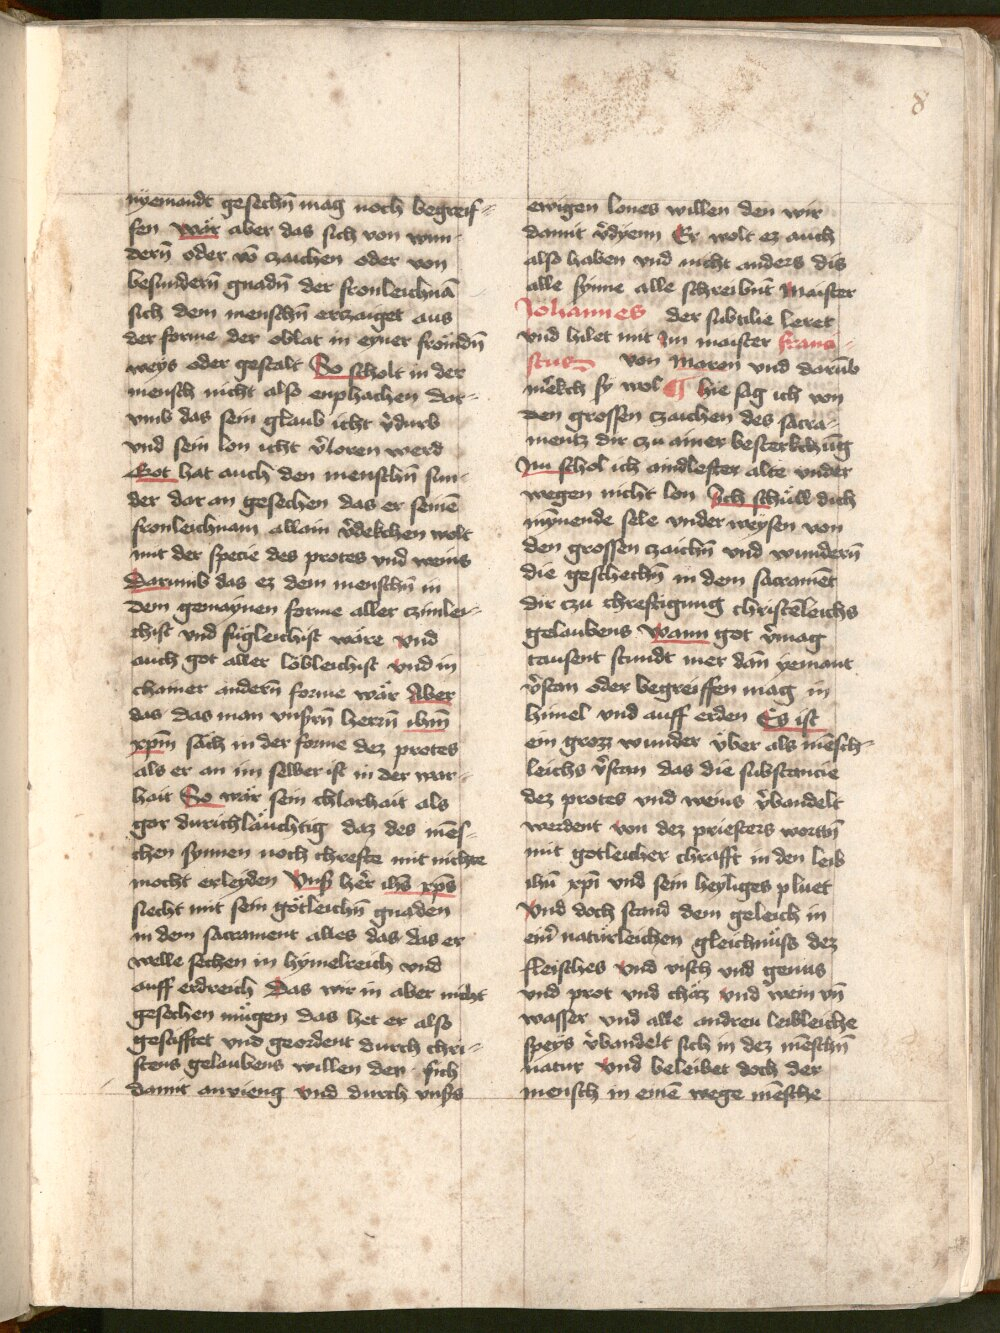 8
nÿemandt gesechn̄ mag noch begreif-
fen wär aber das sich von wun-
dern̄ oder vō czaichen oder von
besundern̄ gnadn̄ der fronleichnā
sich dem menschn̄ erczaiget aus
der forme der oblat in eyner frömdn̄
weÿs oder gestalt So scholt in der
mensch nicht also enphachen dar-
vmb das sein glaub icht v̄durb
vnd sein lon icht v̄loren werd
Got hat auch den menschn̄ sun-
der dar an gesechen das er seinē
fronleichnam allain v̄dekchen wolt
mit der specie des protes vnd weins
Darumb das ez dem menschn̄ in
dem gemaynen forme aller czimlei-
chist vnd fügleichist wäre vnd
auch got aller löbleichist vnd in
chainer andern̄ forme wär Aber
das das man vnsern̄ herrn̄ ihm̄
xpm̄ säch in der forme dez protes
als er an im selber ist in der war-
hait So wär sein chlarhait als
gar durichläuchtig daz des mēs-
chen synnen noch chrefte mit nichte
mocht erleyden Vnser her̄ ihs̄ xps̄
siecht mit sein götleichn̄ gnaden
in dem sacrament alles das das er
welle sechen in hymelreich vnd
auff erdreich Das wir in aber nicht
gesechen mügen das het er also
geschafftet vnd geordent durch chri-
stens gelaubens willen den sich
damit anvieng vnd durch vnsers
ewigen lones willen den wir
damit v̄dyenn Er wolt ez auch
also haben vnd nicht anders dis
alle synne alle schreibnt Maister
Johannes der subtilie leret
vnd hilet mit im maister franci-
scus von Maron vnd darūb
merkch sy wol ¶ hie sag ich von
den grossen czaichen des sacra-
mentz dir czu ainer besterkchūg
Nu schol ich aindlefter alte vnder
wegen nicht lon Ich schüll dich
mÿnende sele vnder weysen von
den grossen czaichn̄ vnd wundern̄
die geschechn̄ in dem sacramēt
dir czu chreftigung christēleichs
gelaubens Wann got v̄mag
tausent stundt mer dan̄ yemant
v̄stan oder begreiffen mag in
himel vnd auff erden Es ist
ein grozz wunder über als mēsch-
leichs v̄stan das die substancie
dez protes vnd weins v̄bandelt
werdent von dez priesters wortn̄
mit gotleicher chrafft in den leib
ihū xpī vnd sein heyliges pluet
Vnd doch stand dem geleich in
ein̄ natürleichen gleichnüss dez
fleisches vnd visch vnd genus
vnd prot vnd chäz vnd wein vn̄
wasser vnd alle andren leibleiche
speys v̄bandelt sich in dez mēschn̄
natur Vnd beleibet doch der
mensch in einē wege mēsche